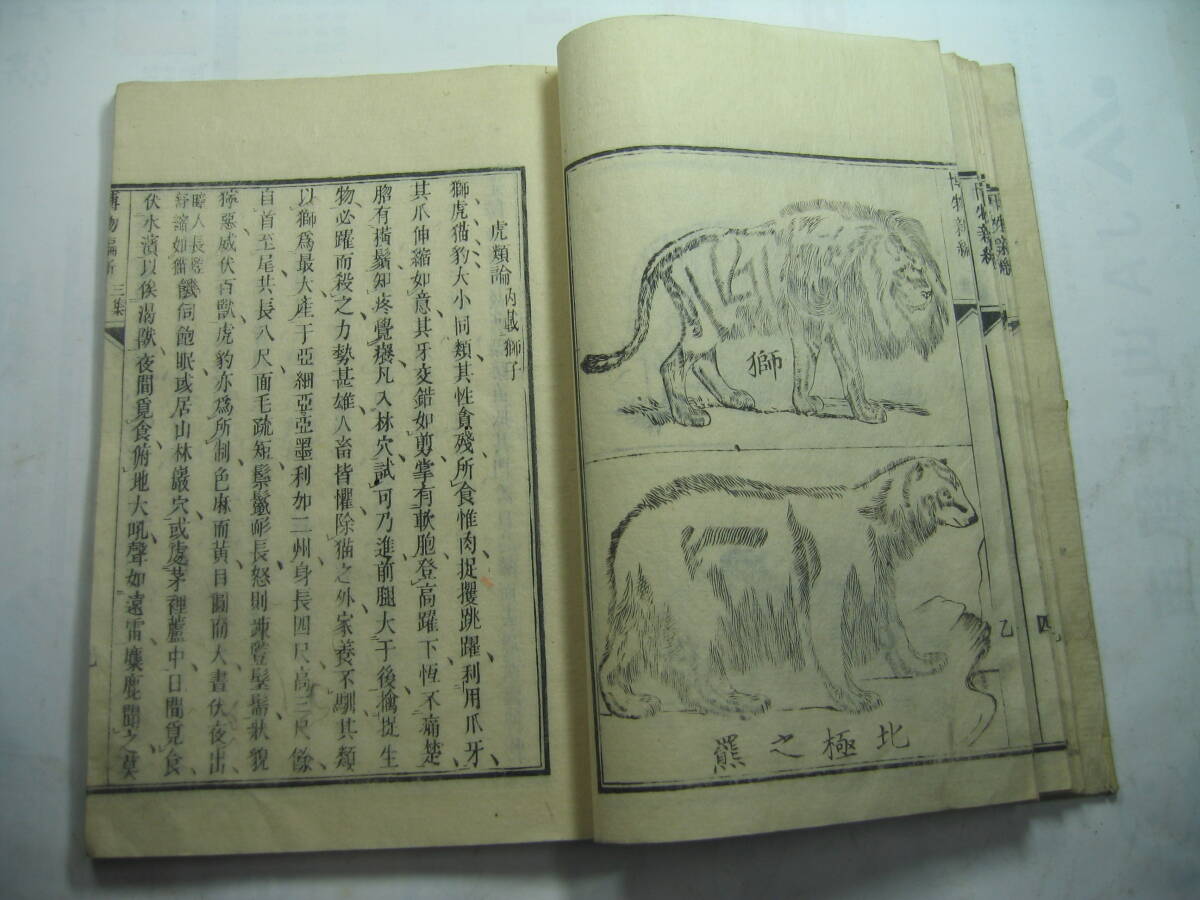 獅
北極之羆
乙
四
虎類論 內載獅子
獅虎猫豹大小同類其性貪殘所食惟肉捉攫跳躍利用爪牙
其爪伸縮如意其牙交錯如剪掌有軟胞登高躍下恆不痛楚
脗有橫鬚知疼覺癢凡入林穴試可乃進前腿大于後擒捉生
物必躍而殺之力勢甚雄人畜皆懼除猫之外家養不馴其類
以獅爲最大產于亞細亞亞墨利加二州身長四尺高三尺餘
自首至尾共長八尺面毛疏短鬃鬣長怒則竦豎髮髵狀貌
獰惡威伏百獸虎豹亦爲所制色麻而黃目圓而大晝伏夜出
睛人長豎
舒縮如猫
饑伺飽眠或居山林巖穴或處茅裡蘆中日間覓食
伏水濱以俟渴獸夜間覓食俯地大吼聲如遠雷麋鹿聞之莫
博物新編 三集